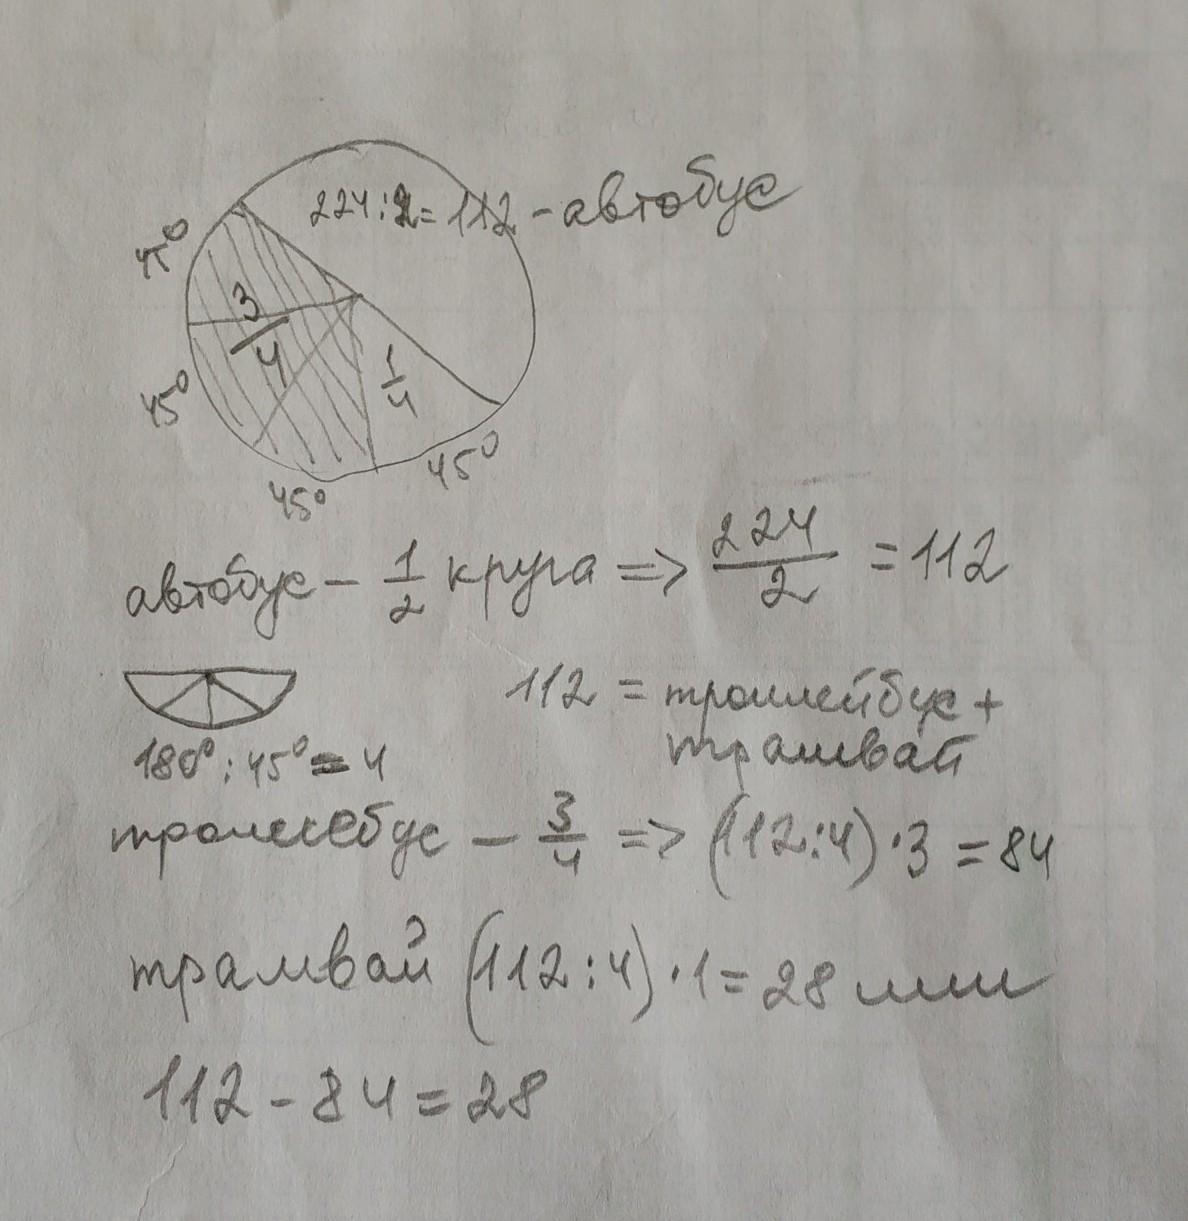 224:2=112 - автобус
45°
3/4
1/4
45°
45°
45°
автобус - 1/2 круга => 224/2 = 112
112 = троллейбус +
трамвай
180° : 45° = 4
троллебус - 3/4 => (112:4)·3 = 84
трамвай (112:4)·1 = 28 или
112 - 84 = 28